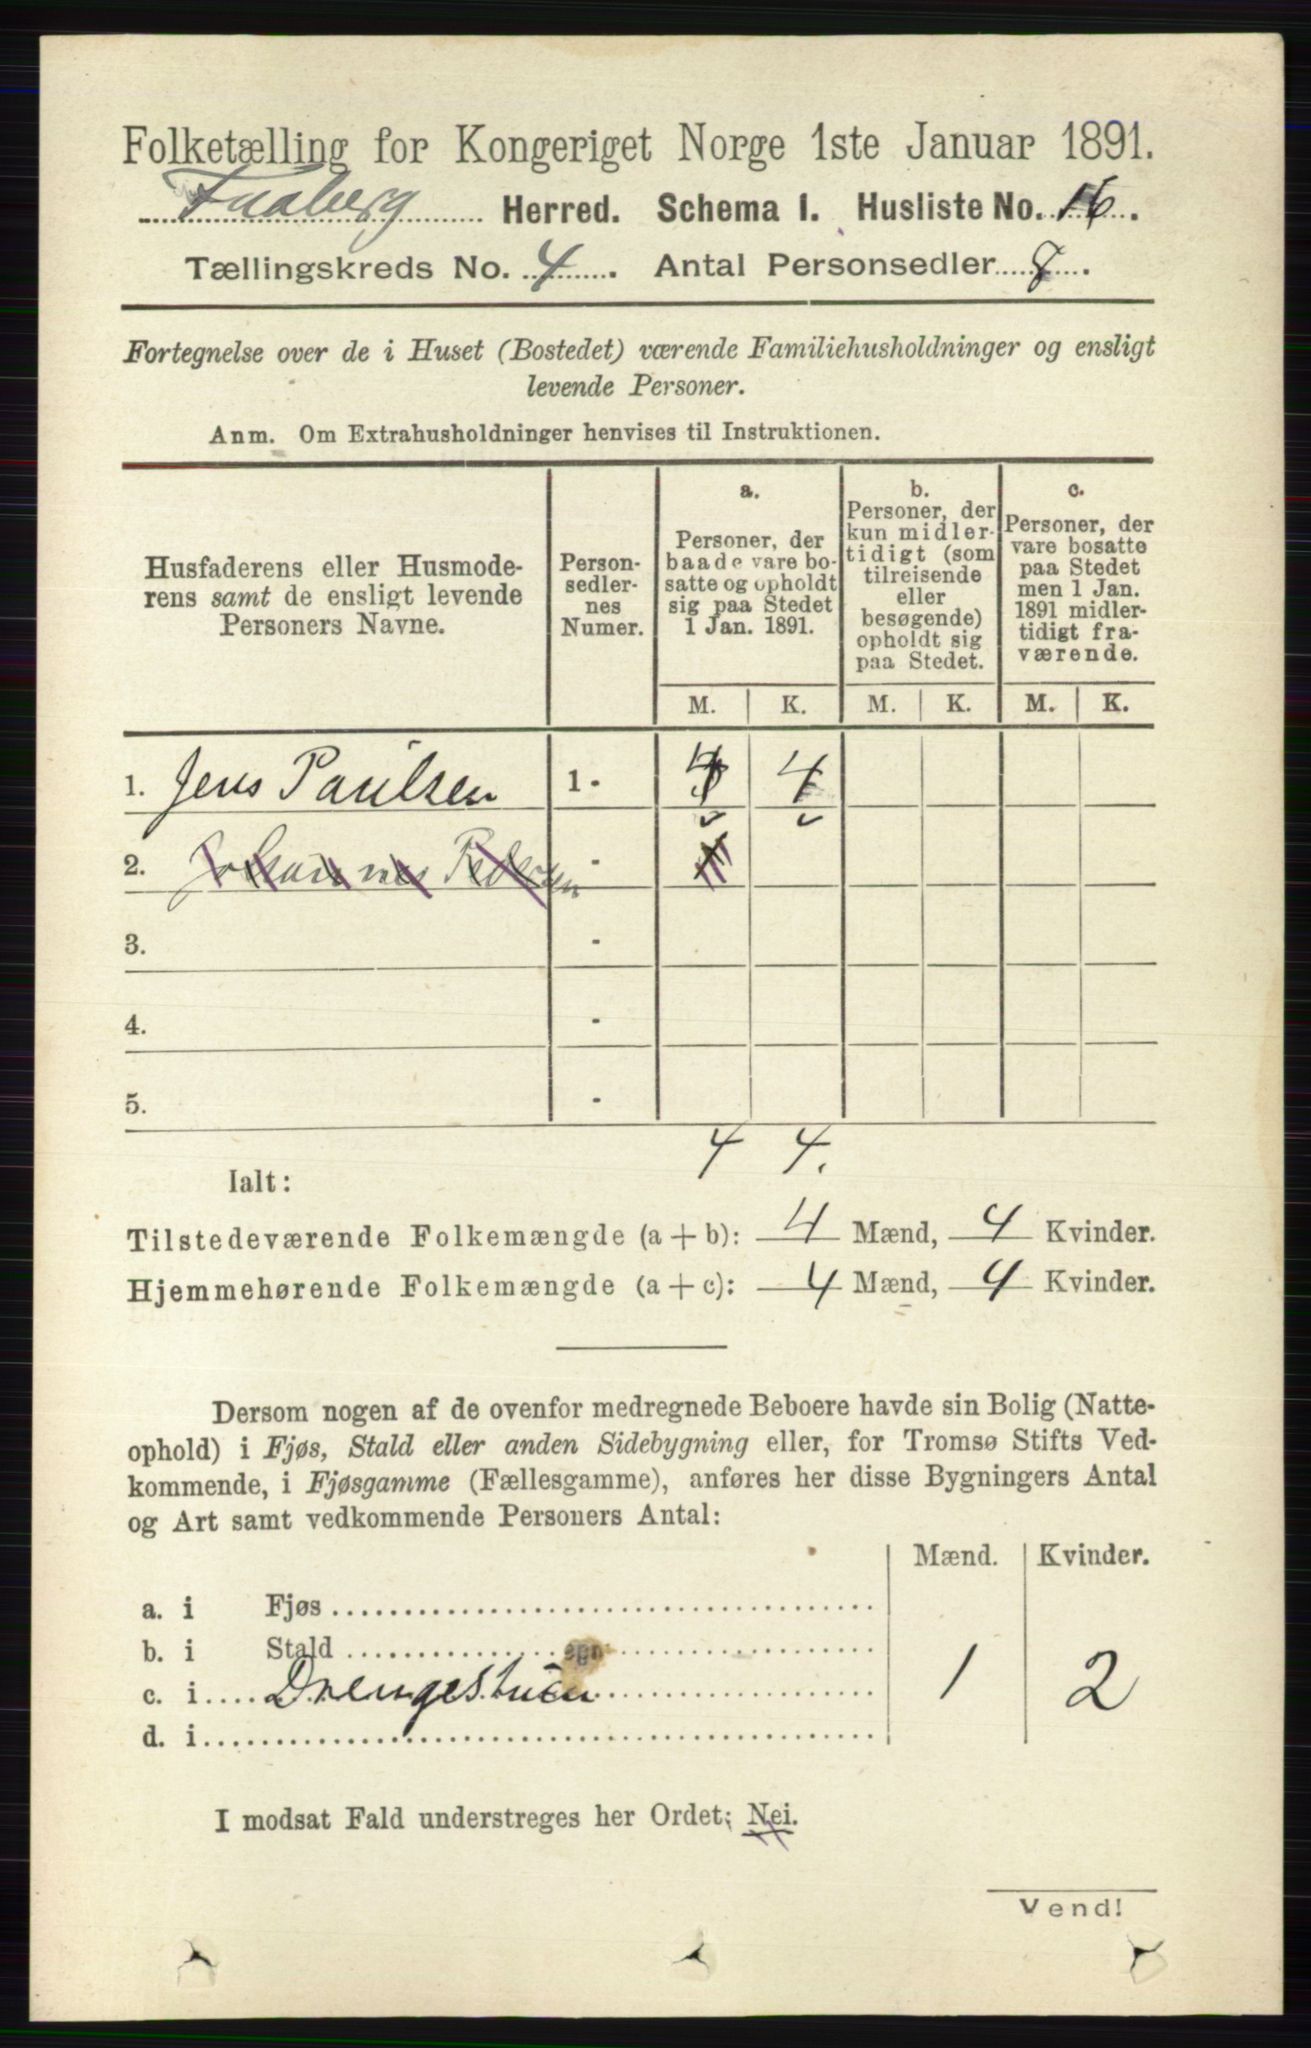 Folketælling for Kongeriget Norge 1ste Januar 1891.
Faaberg Herred. Schema I. Husliste No. 16.
Tællingskreds No. 4. Antal Personsedler 8.
Fortegnelse over de i Huset (Bostedet) værende Familiehusholdninger og ensligt
levende Personer.
Anm. Om Extrahusholdninger henvises til Instruktionen.
Husfaderens eller Husmode-
rens samt de ensligt levende
Personers Navne.
Person-
sedler-
nes
Numer.
a.
Personer, der
baade vare bo-
satte og opholdt
sig paa Stedet
1 Jan. 1891.
b.
Personer, der
kun midler-
tidigt (som
tilreisende
eller
besøgende)
opholdt sig
paa Stedet.
c.
Personer, der
vare bosatte
paa Stedet
men 1 Jan.
1891 midler-
tidigt fra-
værende.
M. K. M. K. M. K.
1. Jens Paulsen 1 - 4 4
2. Johannes Pedersen -
3. -
4. -
5. -
4 4.
Ialt:
Tilstedeværende Folkemængde (a + b): 4 Mænd, 4 Kvinder.
Hjemmehørende Folkemængde (a + c): 4 Mænd, 4 Kvinder.
Dersom nogen af de ovenfor medregnede Beboere havde sin Bolig (Natte-
ophold) i Fjøs, Stald eller anden Sidebygning eller, for Tromsø Stifts Ved-
kommende, i Fjøsgamme (Fællesgamme), anføres her disse Bygningers Antal
og Art samt vedkommende Personers Antal:
Mænd. Kvinder.
a. i Fjøs
b. i Stald
c. i Drengestuen 1 2
d. i
I modsat Fald understreges her Ordet: Nei.
Vend!